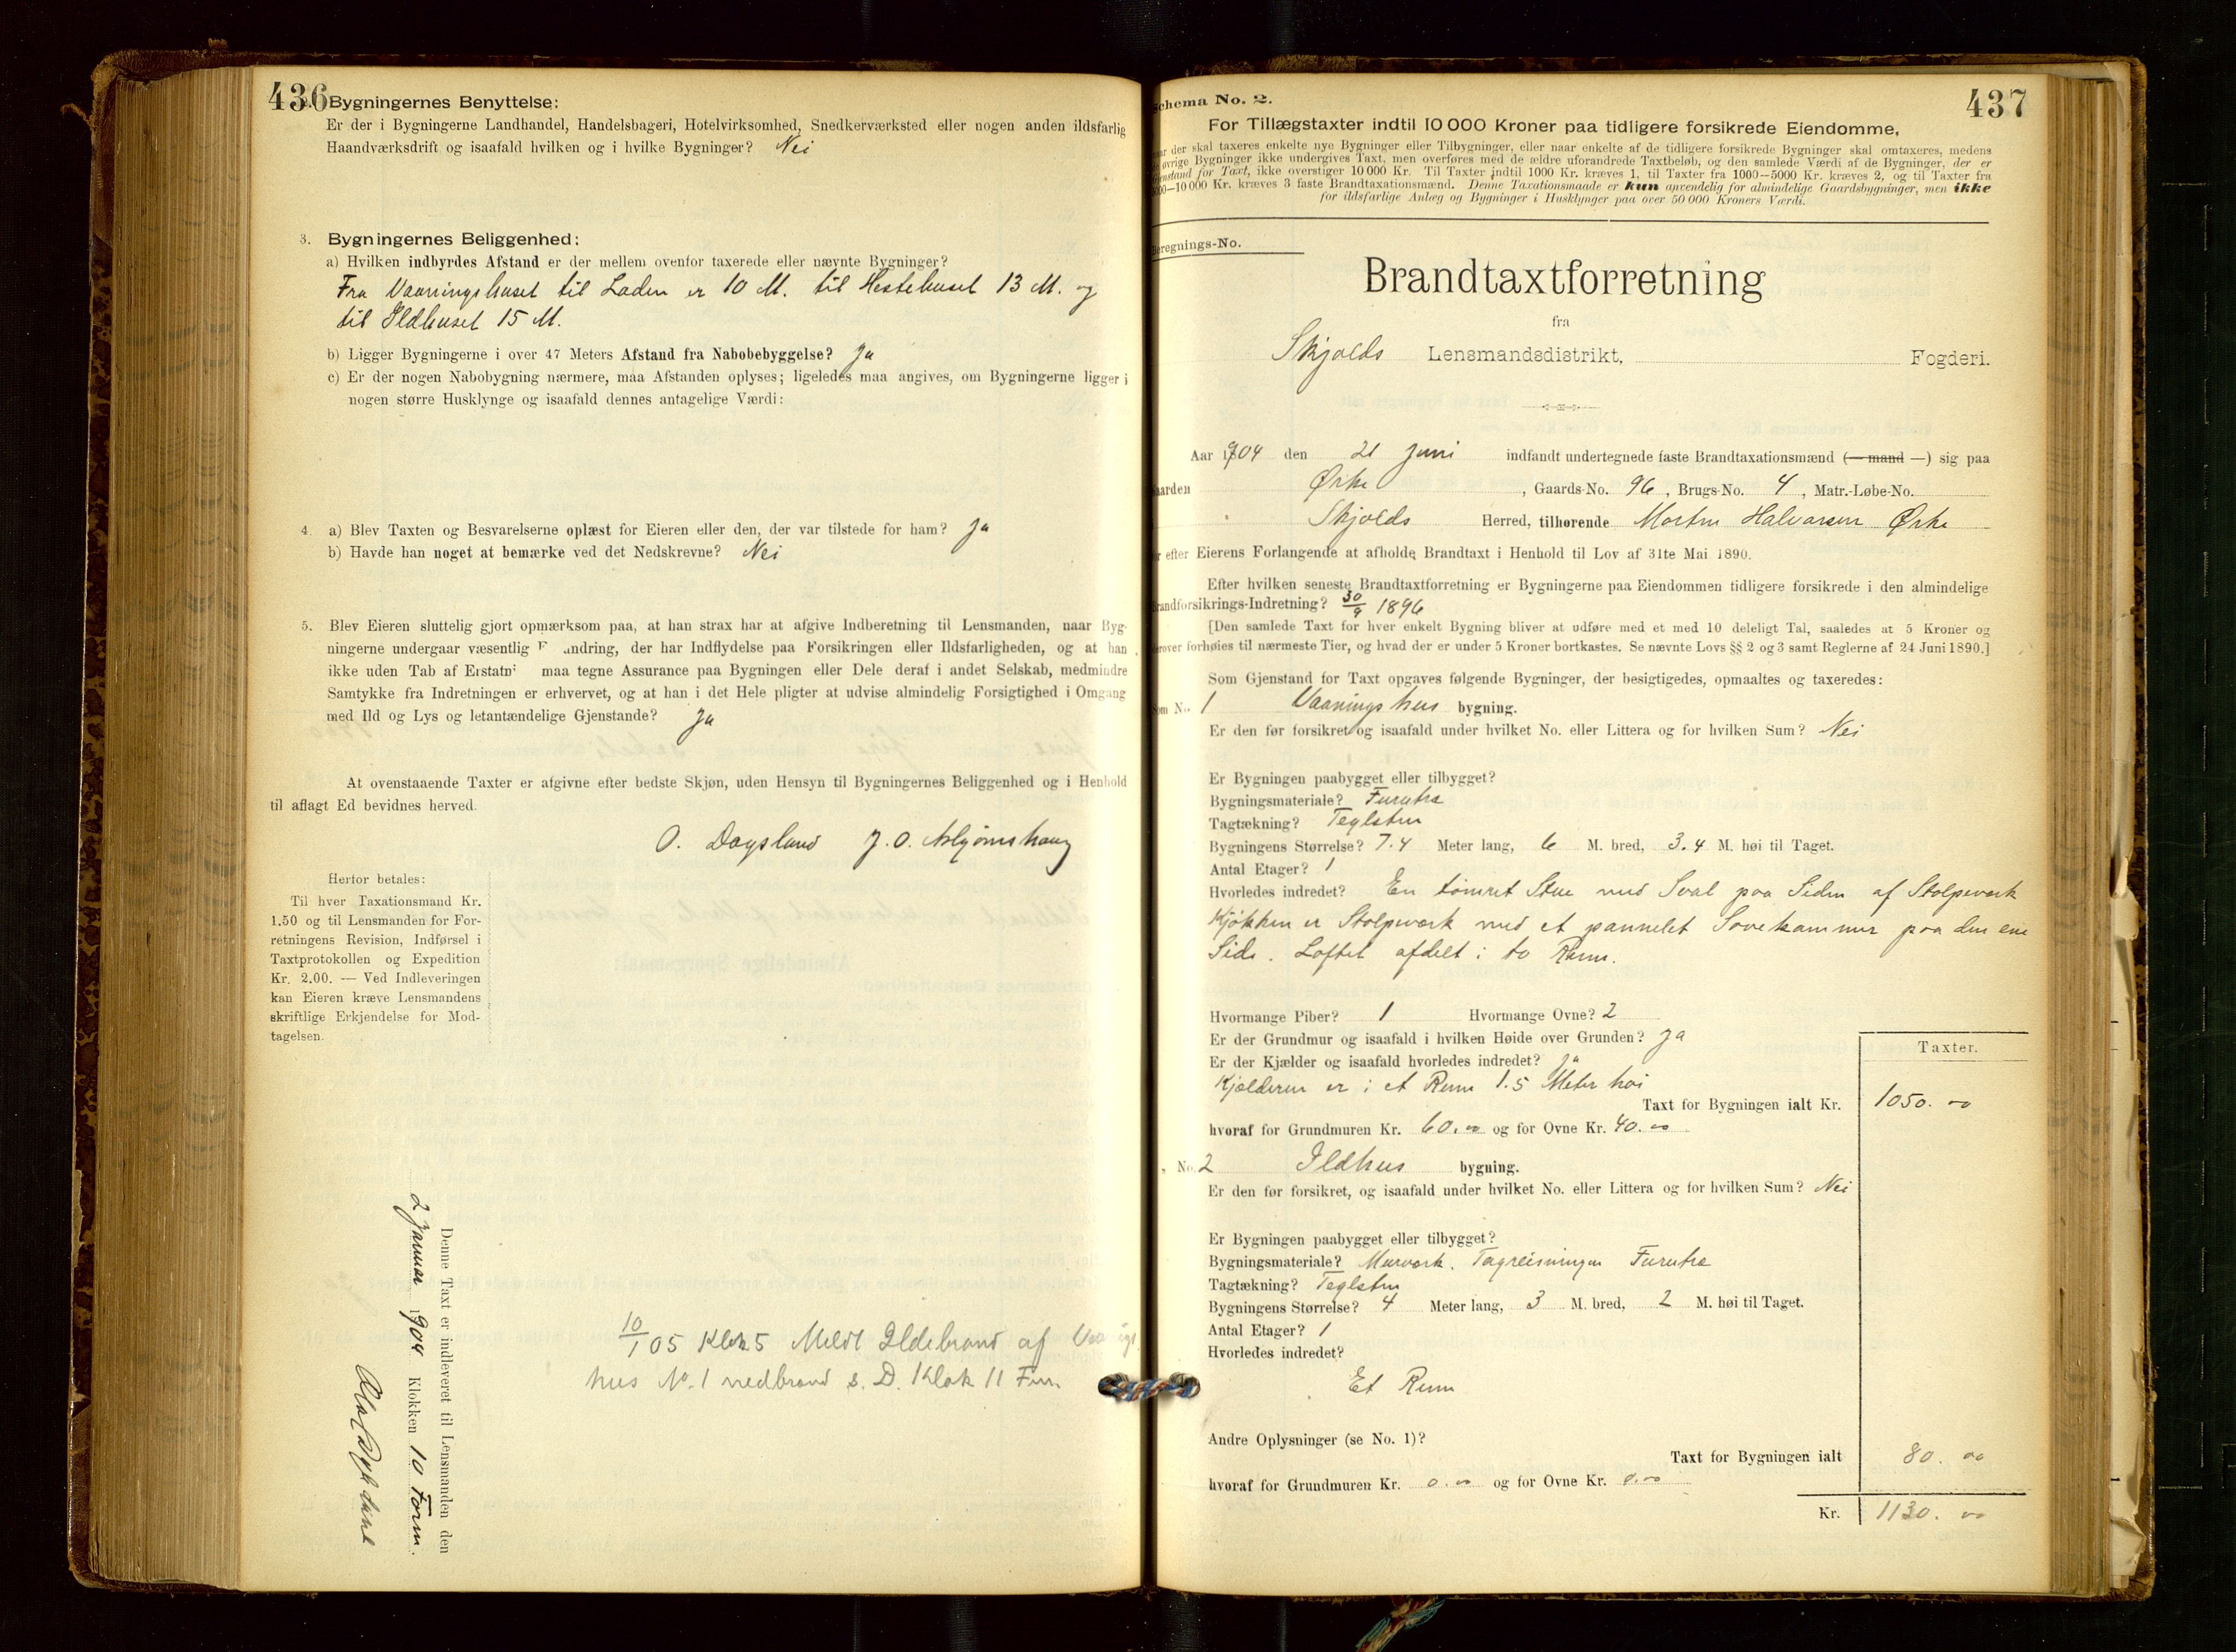 436
Bygningernes Benyttelse:
Er der i Bygningerne Landhandel, Handelsbageri, Hotelvirksomhed, Snedkerværksted eller nogen anden ildsfarlig
Haandværksdrift og isaafald hvilken og i hvilke Bygninger? Nei
3. Bygningernes Beliggenhed:
a) Hvilken indbyrdes Afstand er der mellem ovenfor taxerede eller nævnte Bygninger?
Fra Vaaningshuset til Laden er 10 M. til Hestehuset 13 M. og
til Ildhuset 15 M.
b) Ligger Bygningerne i over 47 Meters Afstand fra Nabobebyggelse? Ja
c) Er der nogen Nabobygning nærmere, maa Afstanden oplyses; ligeledes maa angives, om Bygningerne ligger i
nogen større Husklynge og isaafald dennes antagelige Værdi:
4. a) Blev Taxten og Besvarelserne oplæst for Eieren eller den, der var tilstede for ham? Ja
b) Havde han noget at bemærke ved det Nedskrevne? Nei
5. Blev Eieren sluttelig gjort opmærksom paa, at han strax har at afgive Indberetning til Lensmanden, naar Byg-
ningerne undergaar væsentlig andring, der har Indflydelse paa Forsikringen eller Ildsfarligheden, og at han
ikke uden Tab af Erstatn maa tegne Assurance paa Bygningen eller Dele deraf i andet Selskab, medmindre
Samtykke fra Indretningen er erhvervet, og at han i det Hele pligter at udvise almindelig Forsigtighed i Omgang
med Ild og Lys og letantændelige Gjenstande? Ja
At ovenstaaende Taxter er afgivne efter bedste Skjøn, uden Hensyn til Bygningernes Beliggenhed og i Henhold
til aflagt Ed bevidnes herved.
O. Dagsland J. O.
Herfor betales:
Til hver Taxationsmand Kr.
1.50 og til Lensmanden for For-
retningens Revision, Indførsel i
Taxtprotokollen og Expedition
Kr. 2.00. — Ved Indleveringen
kan Eieren kræve Lensmandens
skriftlige Erkjendelse for Mod-
tagelsen.
Denne Taxt er indleveret til Lensmanden den
2 Januar 1904 Klokken 10 Form.
10/1 05 Meldt Ildebrand af
hus No. 1 nedbrand s. D. Klok 11
437
Schema No. 2.
For Tillægstaxter indtil 10 000 Kroner paa tidligere forsikrede Eiendomme,
naar der skal taxeres enkelte nye Bygninger eller Tilbygninger, eller naar enkelte af de tidligere forsikrede Bygninger skal omtaxeres, medens
øvrige Bygninger ikke undergives Taxt, men overføres med de ældre uforandrede Taxtbeløb, og den samlede Værdi af de Bygninger, der er
Gjenstand for Taxt, ikke overstiger 10 000 Kr. Til Taxter indtil 1000 Kr. kræves 1, til Taxter fra 1000—5000 Kr. kræves 2, og til Taxter fra
5000—10 000 Kr. kræves 3 faste Brandtaxationsmænd. Denne Taxationsmaade er kun anvendelig for almindelige Gaardsbygninger, men ikke
for ildsfarlige Anlæg og Bygninger i Husklynger paa over 50 000 Kroners Værdi.
Beregnings-No.
Brandtaxtforretning
fra
Skjolds Lensmandsdistrikt, Fogderi.
Aar 1904 den 21 Juni indfandt undertegnede faste Brandtaxationsmænd (— mand —) sig paa
Gaarden Ørke, Gaards-No. 96, Brugs-No. 4, Matr.-Løbe-No.
Skjolds Herred, tilhørende Morten Halvorsen Ørke
for efter Eierens Forlangende at afholde Brandtaxt i Henhold til Lov af 31te Mai 1890.
Efter hvilken seneste Brandtaxtforretning er Bygningerne paa Eiendommen tidligere forsikrede i den almindelige
Brandforsikrings-Indretning? 30/9 1896
[Den samlede Taxt for hver enkelt Bygning bliver at udføre med et med 10 deleligt Tal, saaledes at 5 Kroner og
derover forhøies til nærmeste Tier, og hvad der er under 5 Kroner bortkastes. Se nævnte Lovs §§ 2 og 3 samt Reglerne af 24 Juni 1890.]
Som Gjenstand for Taxt opgaves følgende Bygninger, der besigtigedes, opmaaltes og taxeredes:
Som No. 1 Vaaningshus bygning.
Er den før forsikret og isaafald under hvilket No. eller Littera og for hvilken Sum? Nei
Er Bygningen paabygget eller tilbygget?
Bygningsmateriale? Furutræ
Tagtækning? Teglsten
Bygningens Størrelse? 7.4 Meter lang, 6 M. bred, 3.4 M. høi til Taget.
Antal Etager? 1
Hvorledes indredet? En tømret Stue med Sval paa Siden af Stolpeværk
Kjøkken er Stolpværk med et pannelet Sovekammer paa den ene
Side. Loftet afdelt i to Rum.
Hvormange Piber? 1 Hvormange Ovne? 2
Er der Grundmur og isaafald i hvilken Høide over Grunden? Ja
Er der Kjælder og isaafald hvorledes indredet? Ja
Kjælderen er i et Rum 1.5 Meter høi
Taxter.
Taxt for Bygningen ialt Kr. 1050.00
hvoraf for Grundmuren Kr. 60.00 og for Ovne Kr. 40.00
No. 2 Ildhus bygning.
Er den før forsikret, og isaafald under hvilket No. eller Littera og for hvilken Sum? Nei
Er Bygningen paabygget eller tilbygget?
Bygningsmateriale? Murværk. Tagreisningen Furutræ
Tagtækning? Teglsten
Bygningens Størrelse? 4 Meter lang, 3 M. bred, 2 M. høi til Taget.
Antal Etager? 1
Hvorledes indredet?
Et Rum
Andre Oplysninger (se No. 1)?
Taxt for Bygningen ialt 80.00
hvoraf for Grundmuren Kr. 0.00 og for Ovne Kr. 0.00
Kr. 1130.00